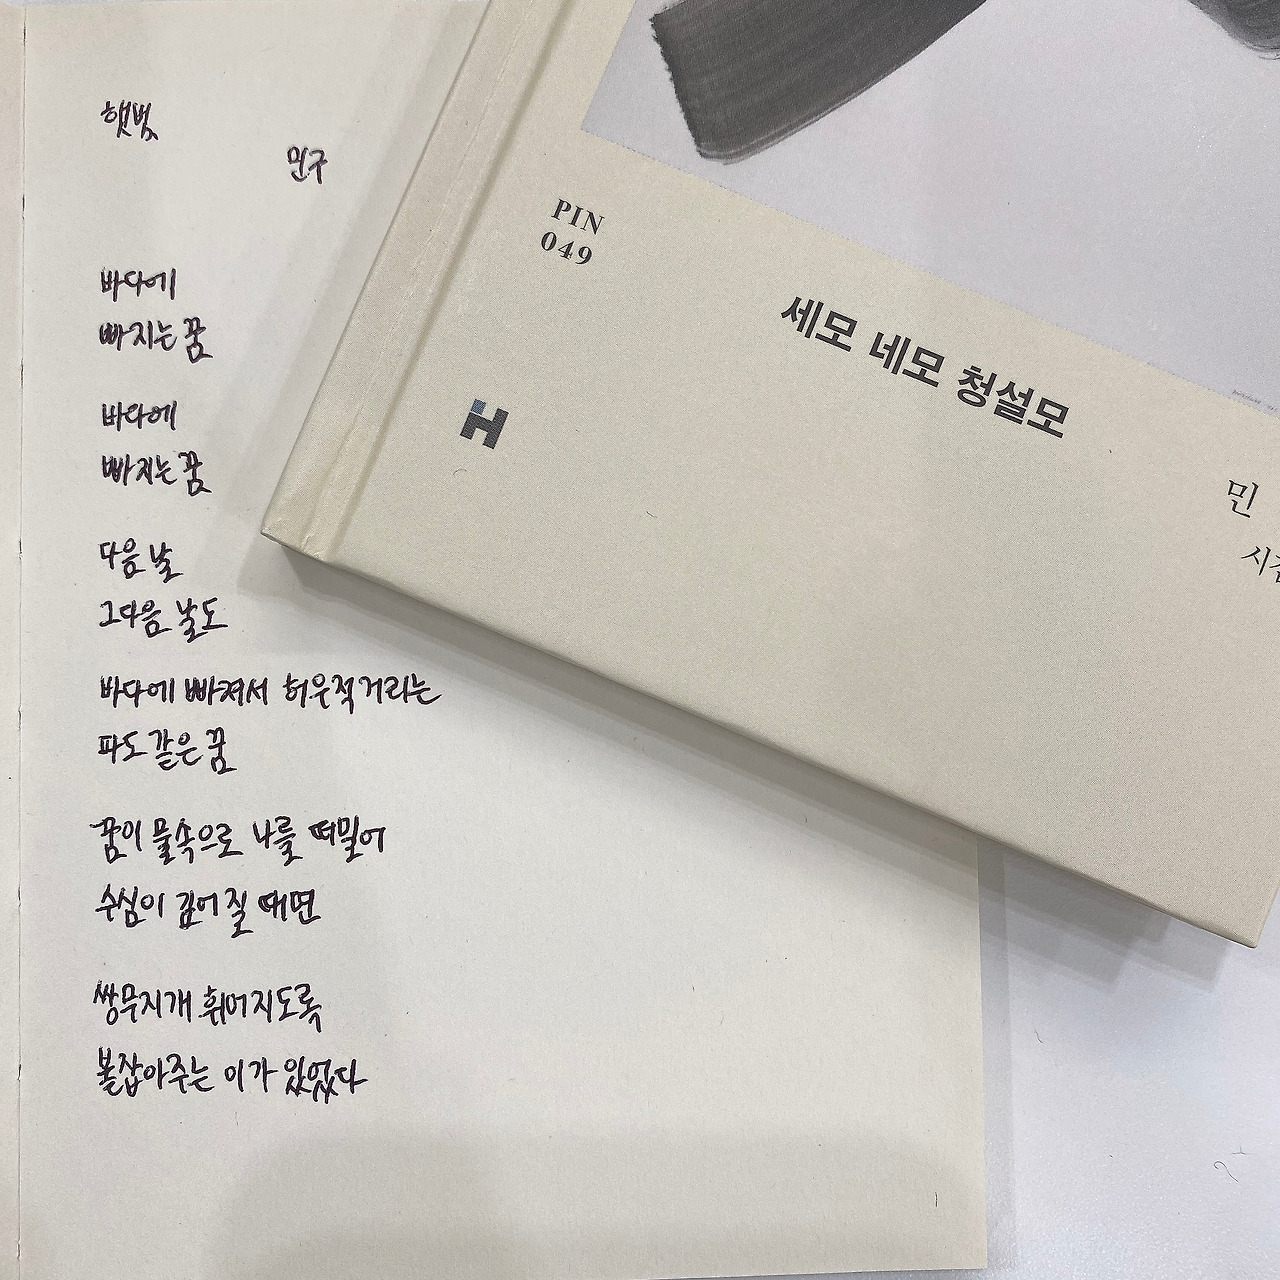 햇빛
민구
바다에
빠지는 꿈
바다에
빠지는 꿈
다음 날
그다음 날도
바다에 빠져서 허우적거리는
파도 같은 꿈
꿈이 물속으로 나를 떠밀어
수심이 깊어질 때면
쌍무지개 휘어지도록
붙잡아주는 이가 있었다
PIN
049
세모 네모 청설모
H
민